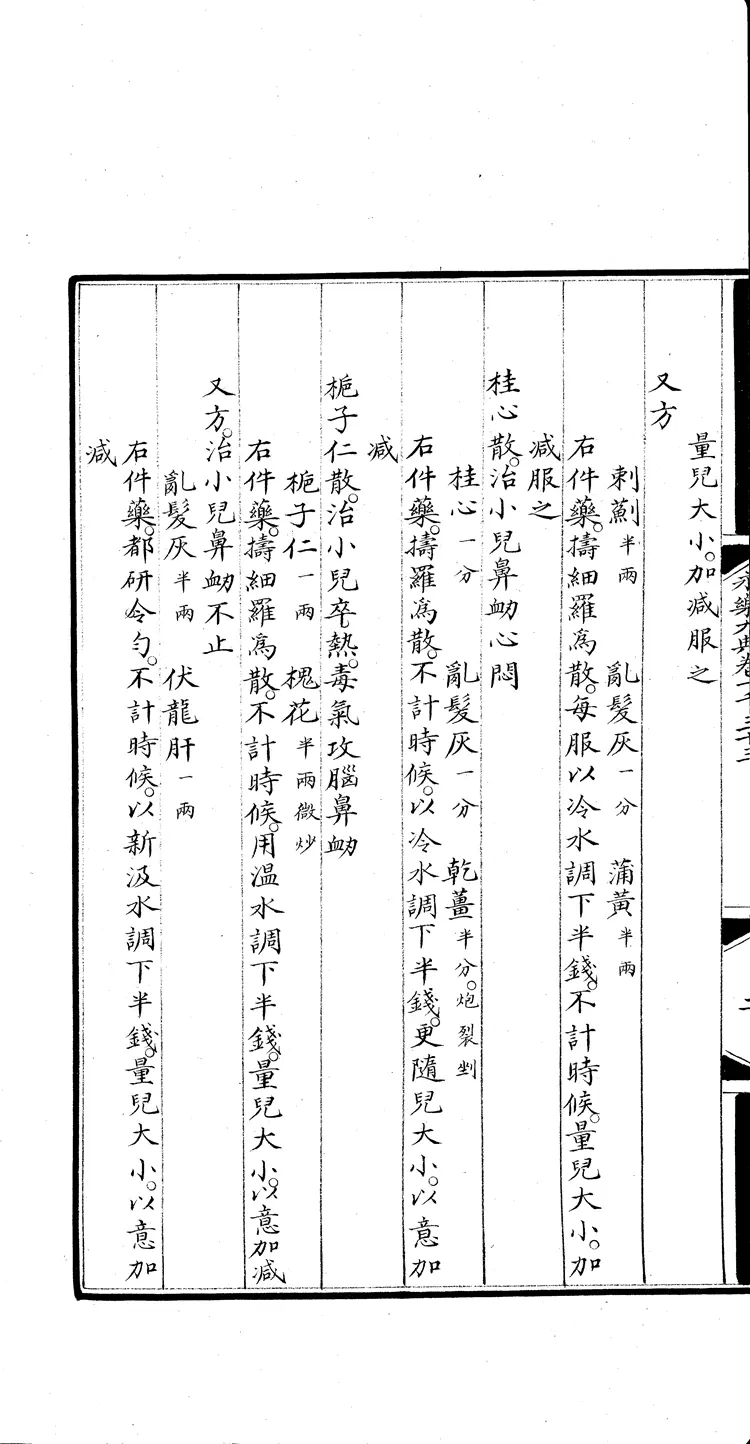 量兒大小。加減服之
又方
刺薊半兩 亂髮灰一分 蒲黃半兩
右件藥。擣細羅為散。每服以冷水調下半錢。不計時候。量兒大小。加
減服之
桂心散。治小兒鼻衂心悶
桂心一分 亂髮灰一分 乾薑半分。炮裂剉
右件藥。擣羅為散。不計時候。以冷水調下半錢。更隨兒大小。以意加
減
梔子仁散。治小兒卒熱。毒氣攻腦鼻衂
梔子仁一兩 槐花半兩微炒
右件藥。擣細羅為散。不計時候。用溫水調下半錢。量兒大小。以意加減
又方。治小兒鼻衂不止
亂髮灰半兩 伏龍肝一兩
右件藥。都研令勻。不計時候。以新汲水調下半錢。量兒大小。以意加
減